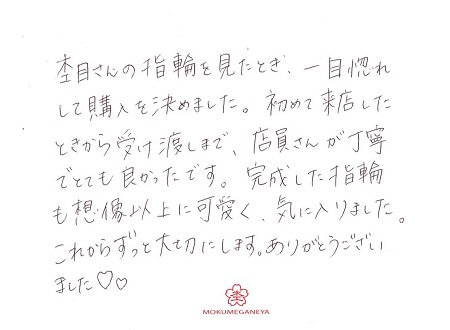 杢目さんの指輪を見たとき、一目惚れ
して購入を決めました。初めて来店した
ときから受け渡しまで、店員さんが丁寧
でとても良かったです。完成した指輪
も想像以上に可愛く、気に入りました。
これからずっと大切にします。ありがとうござい
ました♡♡
杢
MOKUMEGANEYA